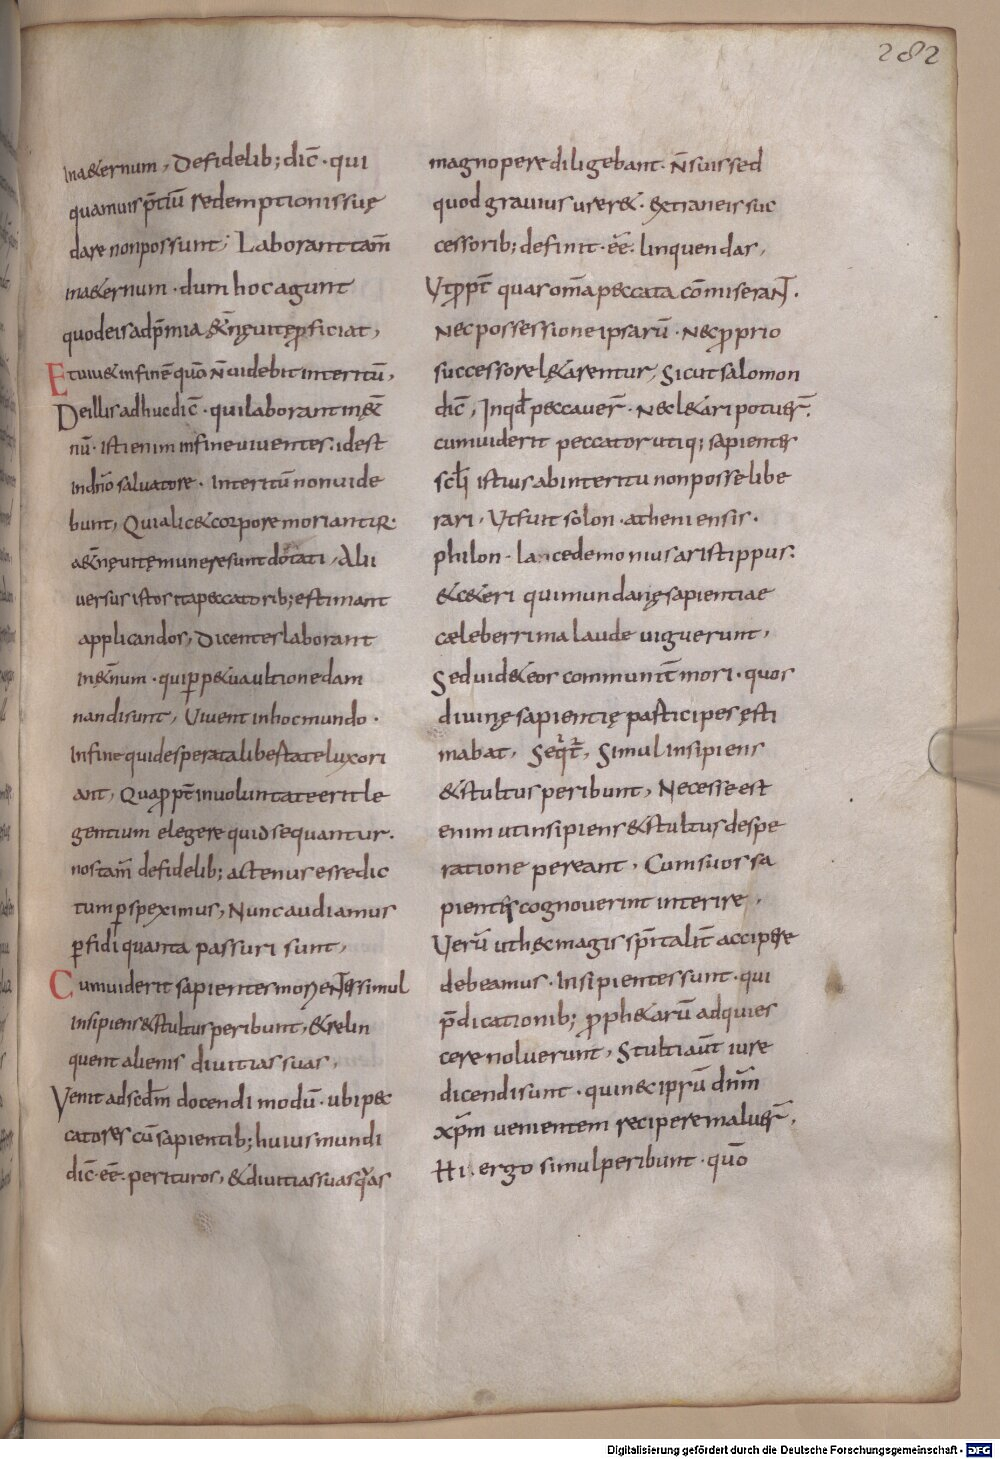 282
In a&ernum, De fidelib; dic̄ · qui
quamuis p̄tiū redemptionis suę
dare non possunt; Laborant tam̄
in a&ernum · dum hoc agunt
quod eis ad p̄mia &̄nę uitę ꝑficiat,
Et uiu& in finē quō n̄ uidebit interitū,
De illis adhuc dic̄ · qui laborant in &̄
nū · isti enim in fine uiuentes · id est
in dn̄o saluatore · Interitū non uide
bunt, Quia lic& corpore moriantur·
a&̄nę uitę munere sunt dotati, Alii
uersus istos ita peccatorib; estimant
applicandos, Dicentes laborant
in &̄num · qui ꝑp&ua ultione dam
nandi sunt, Uiuent in hoc mundo ·
In fine qui desperata libertate luxori
ant, Quapropt̄ in uoluntate erit le
gentium elegere quid sequantur.
nos tam̄ de fidelib; actenus esse dic
tum ꝑspeximus, Nunc audiamus
ꝑfidi quanta passuri sunt,
Cum uiderit sapientes morientes simul
Insipiens & stultus peribunt, & relin
quent alienis diuitias suas,
Venit ad sc̄dm docendi modū · ubi pec
catores cū sapientib; huius mundi
dic̄ · eē · perituros, & diuitias suas qas
magnopere diligebant · n̄ suis sed
quod grauius urer& · extraneis suc
cessorib; definit · eē · linquendas,
Vt ꝓpt̄ quas om̄a peccata cōmiserant̄ ·
Nec possessione ipsarū · nec ꝓprio
successore l&arentur, Sicut salomon
dic̄, Inqd̄ peccauer̄ · nec l&ari potuer̄.
cum uiderit peccator utiq; sapientes
sc̄li istius ab interitu non posse libe
rari, Vt fuit solon · atheniensis ·
philon · lacedemonius aristippus:
& c&eri qui mundanę sapientiae
cæleberrima laude uiguerunt,
Sed uid& eos communit̄ mori · quos
diuinę sapientię participes ęsti
mabat, Seqit̄, Simul insipiens
& stultus peribunt, Necesse est
enim ut insipiens & stultus despe
ratione pereant, Cum suos sa
pientes cognouerint interire,
Verū ut hęc magis sp̄italit̄ accipere
debeamus · Insipientes sunt · qui
p̄dicationib; ꝓph&arū adquies
cere noluerunt, Stulti aūt iure
dicendi sunt · qui nec ipsū dn̄m
xp̄m uenientem recipere maluer̄,
Hi ergo simul peribunt · quō
Digitalisierung gefördert durch die Deutsche Forschungsgemeinschaft - DFG